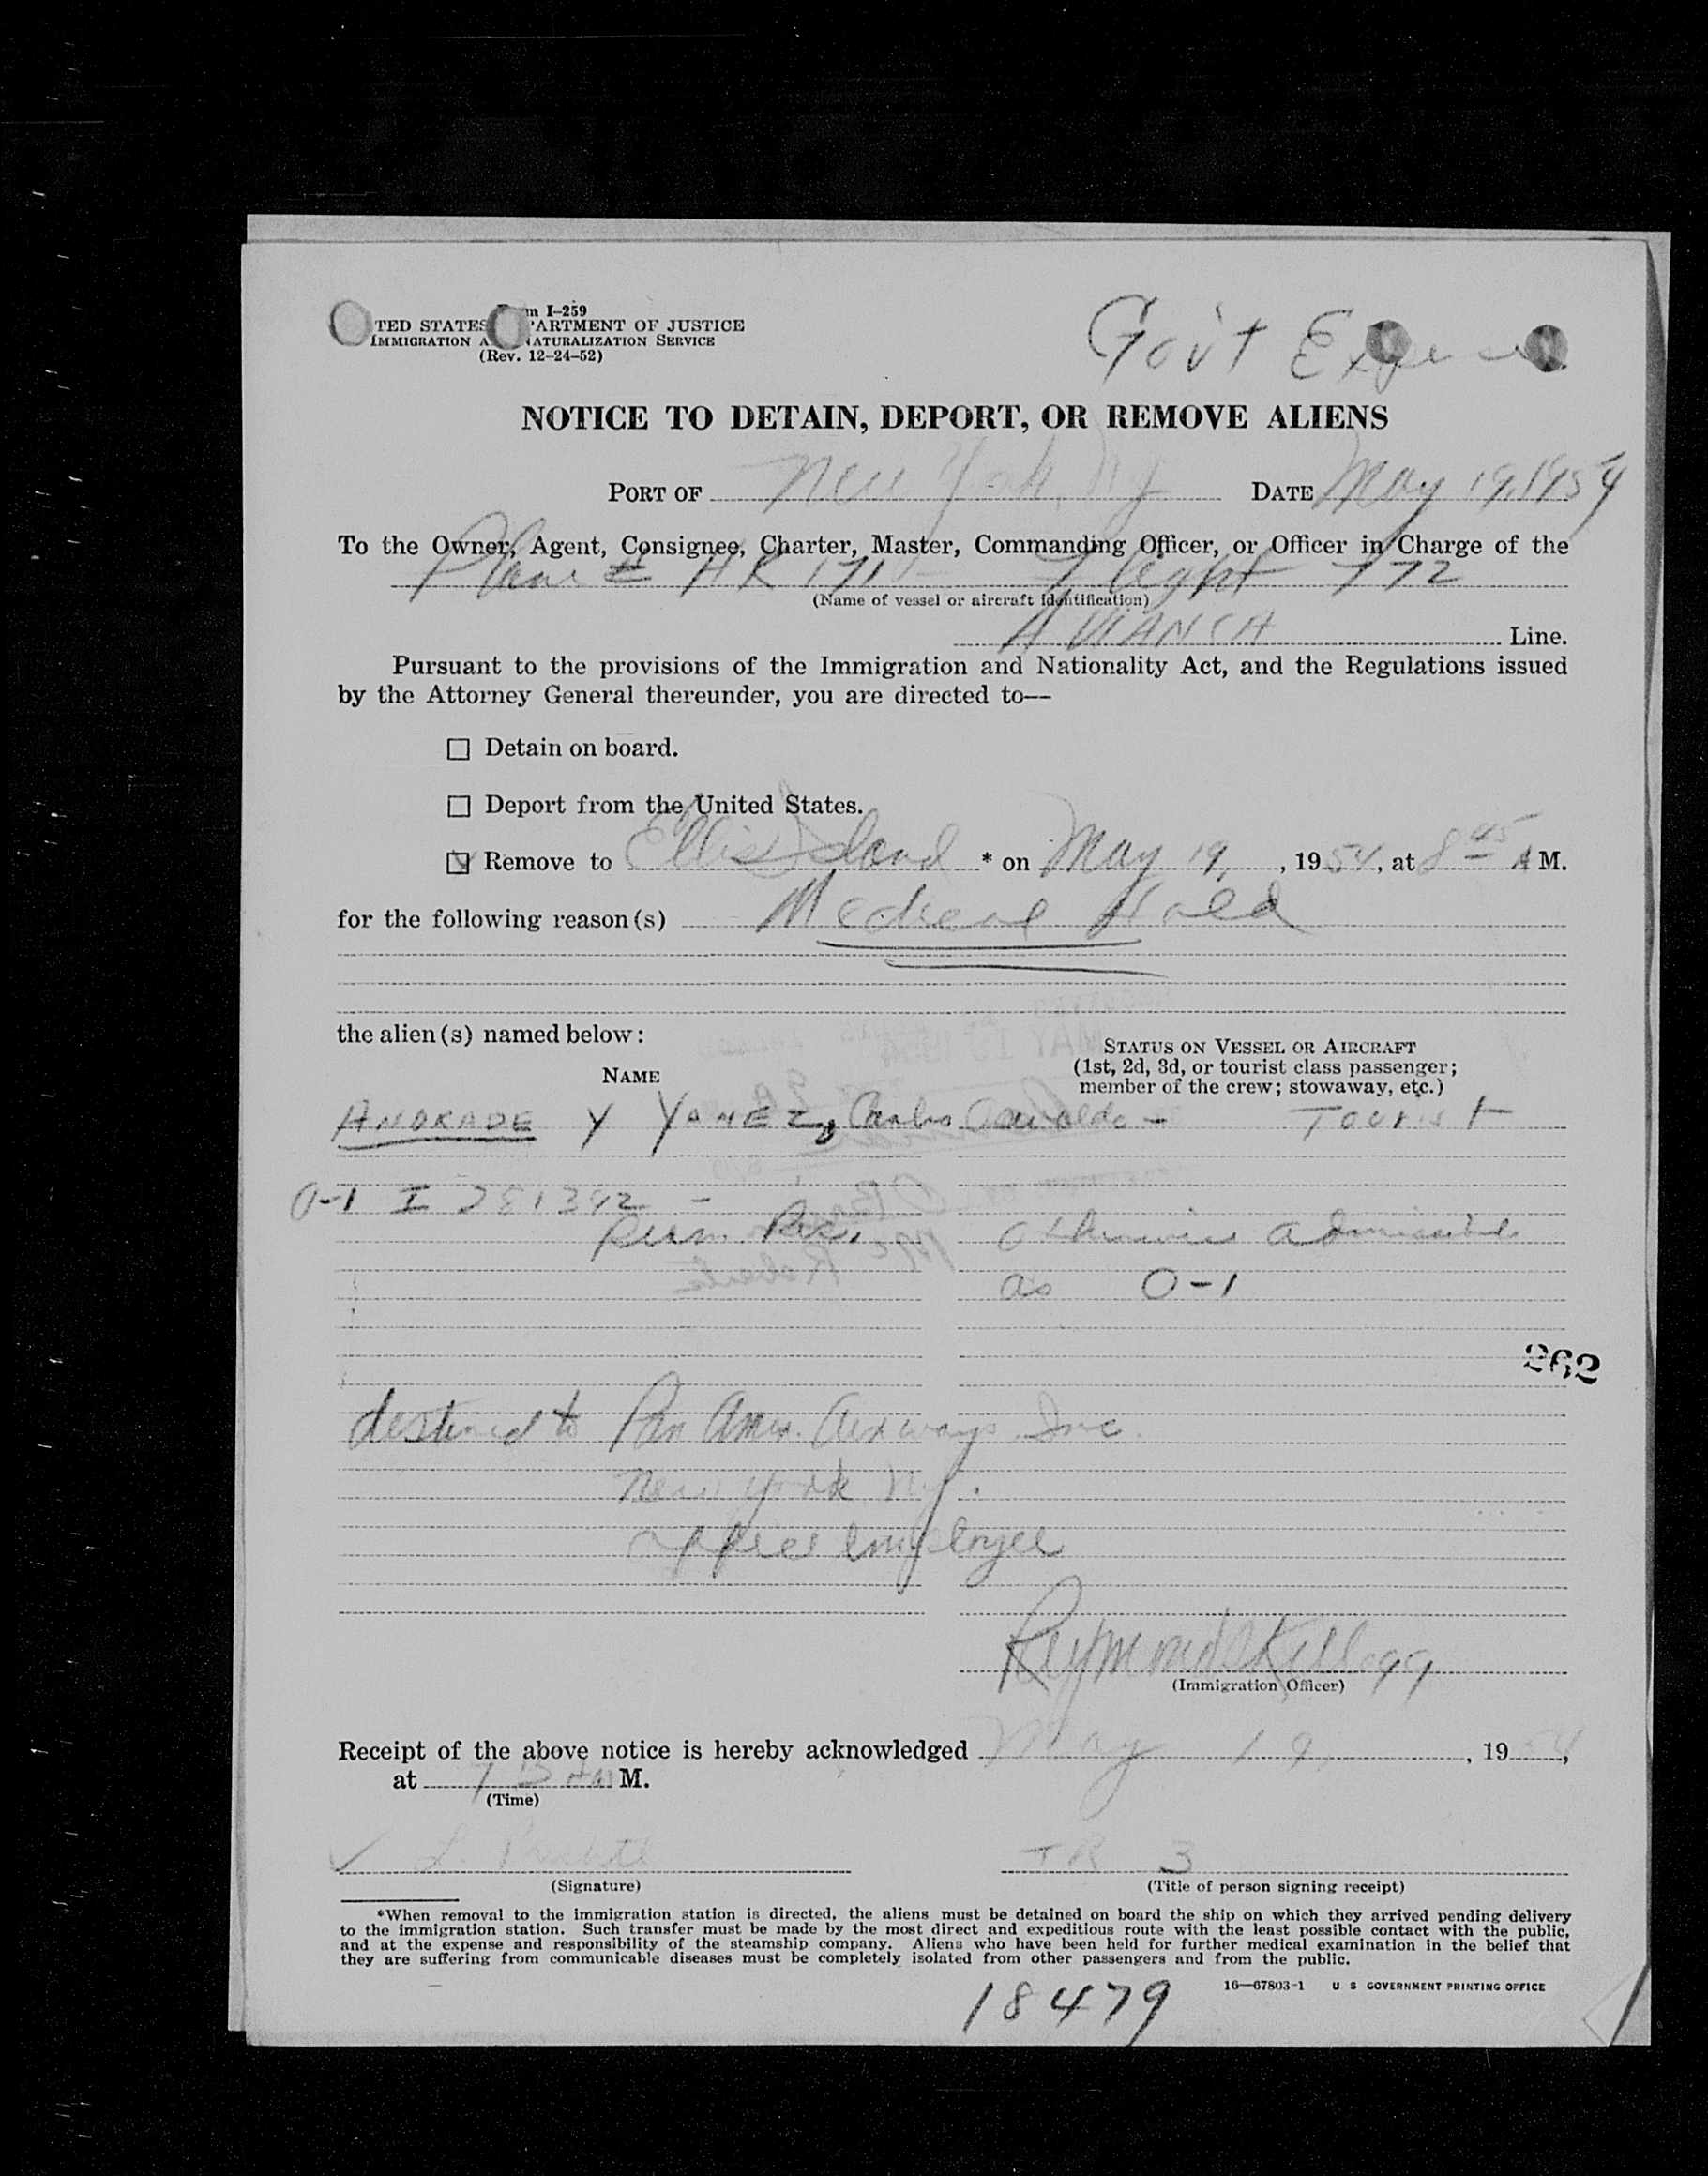 m I-259
TED STATES PARTMENT OF JUSTICE
IMMIGRATION A NATURALIZATION SERVICE
(Rev. 12-24-52)
Gov't Expense
NOTICE TO DETAIN, DEPORT, OR REMOVE ALIENS
PORT OF New York, Ny DATE May 19, 1954
To the Owner, Agent, Consignee, Charter, Master, Commanding Officer, or Officer in Charge of the
Plane # HK 171 Flight 772
(Name of vessel or aircraft identification)
AVIANCA Line.
Pursuant to the provisions of the Immigration and Nationality Act, and the Regulations issued
by the Attorney General thereunder, you are directed to—
☐ Detain on board.
☐ Deport from the United States.
☑ Remove to Ellis Island * on May 19, , 1954, at 8 45 A M.
for the following reason(s) Medical Hold
the alien(s) named below:
STATUS ON VESSEL OR AIRCRAFT
(1st, 2d, 3d, or tourist class passenger;
member of the crew; stowaway, etc.)
NAME
ANDRADE Y YANEZ, Carlos Oswaldo - Tourist
O-1 I 281392 -
Perm Res. otherwise admissible
as O-1
262
destined to Pan Amer. Airways Inc.
New York Ny.
office employee
Raymond Kellogg
(Immigration Officer)
Receipt of the above notice is hereby acknowledged May 19, , 1954,
at M.
(Time)
L.
TR 3
(Signature) (Title of person signing receipt)
*When removal to the immigration station is directed, the aliens must be detained on board the ship on which they arrived pending delivery
to the immigration station. Such transfer must be made by the most direct and expeditious route with the least possible contact with the public,
and at the expense and responsibility of the steamship company. Aliens who have been held for further medical examination in the belief that
they are suffering from communicable diseases must be completely isolated from other passengers and from the public.
16—67803-1 U S GOVERNMENT PRINTING OFFICE
18479